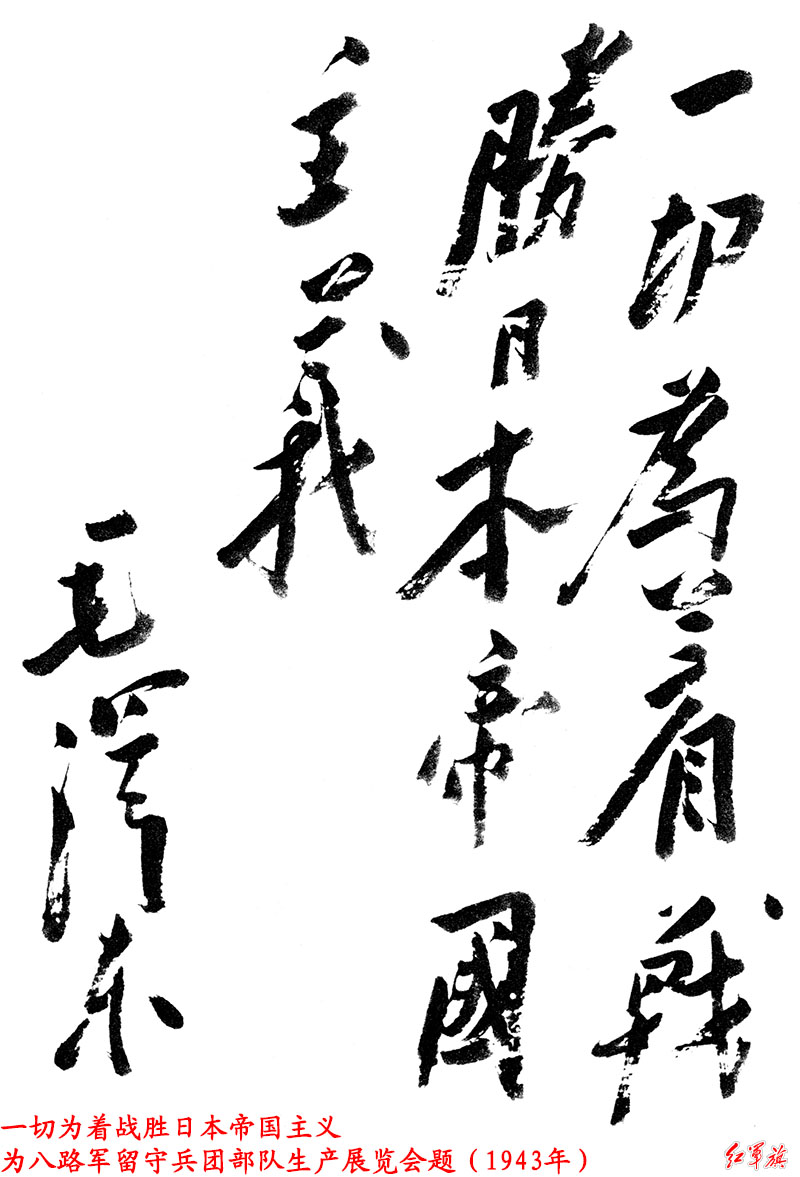 一切為着戰
勝日本帝國
主義
毛澤东
一切为着战胜日本帝国主义
为八路军留守兵团部队生产展览会题（1943年）
红军旗